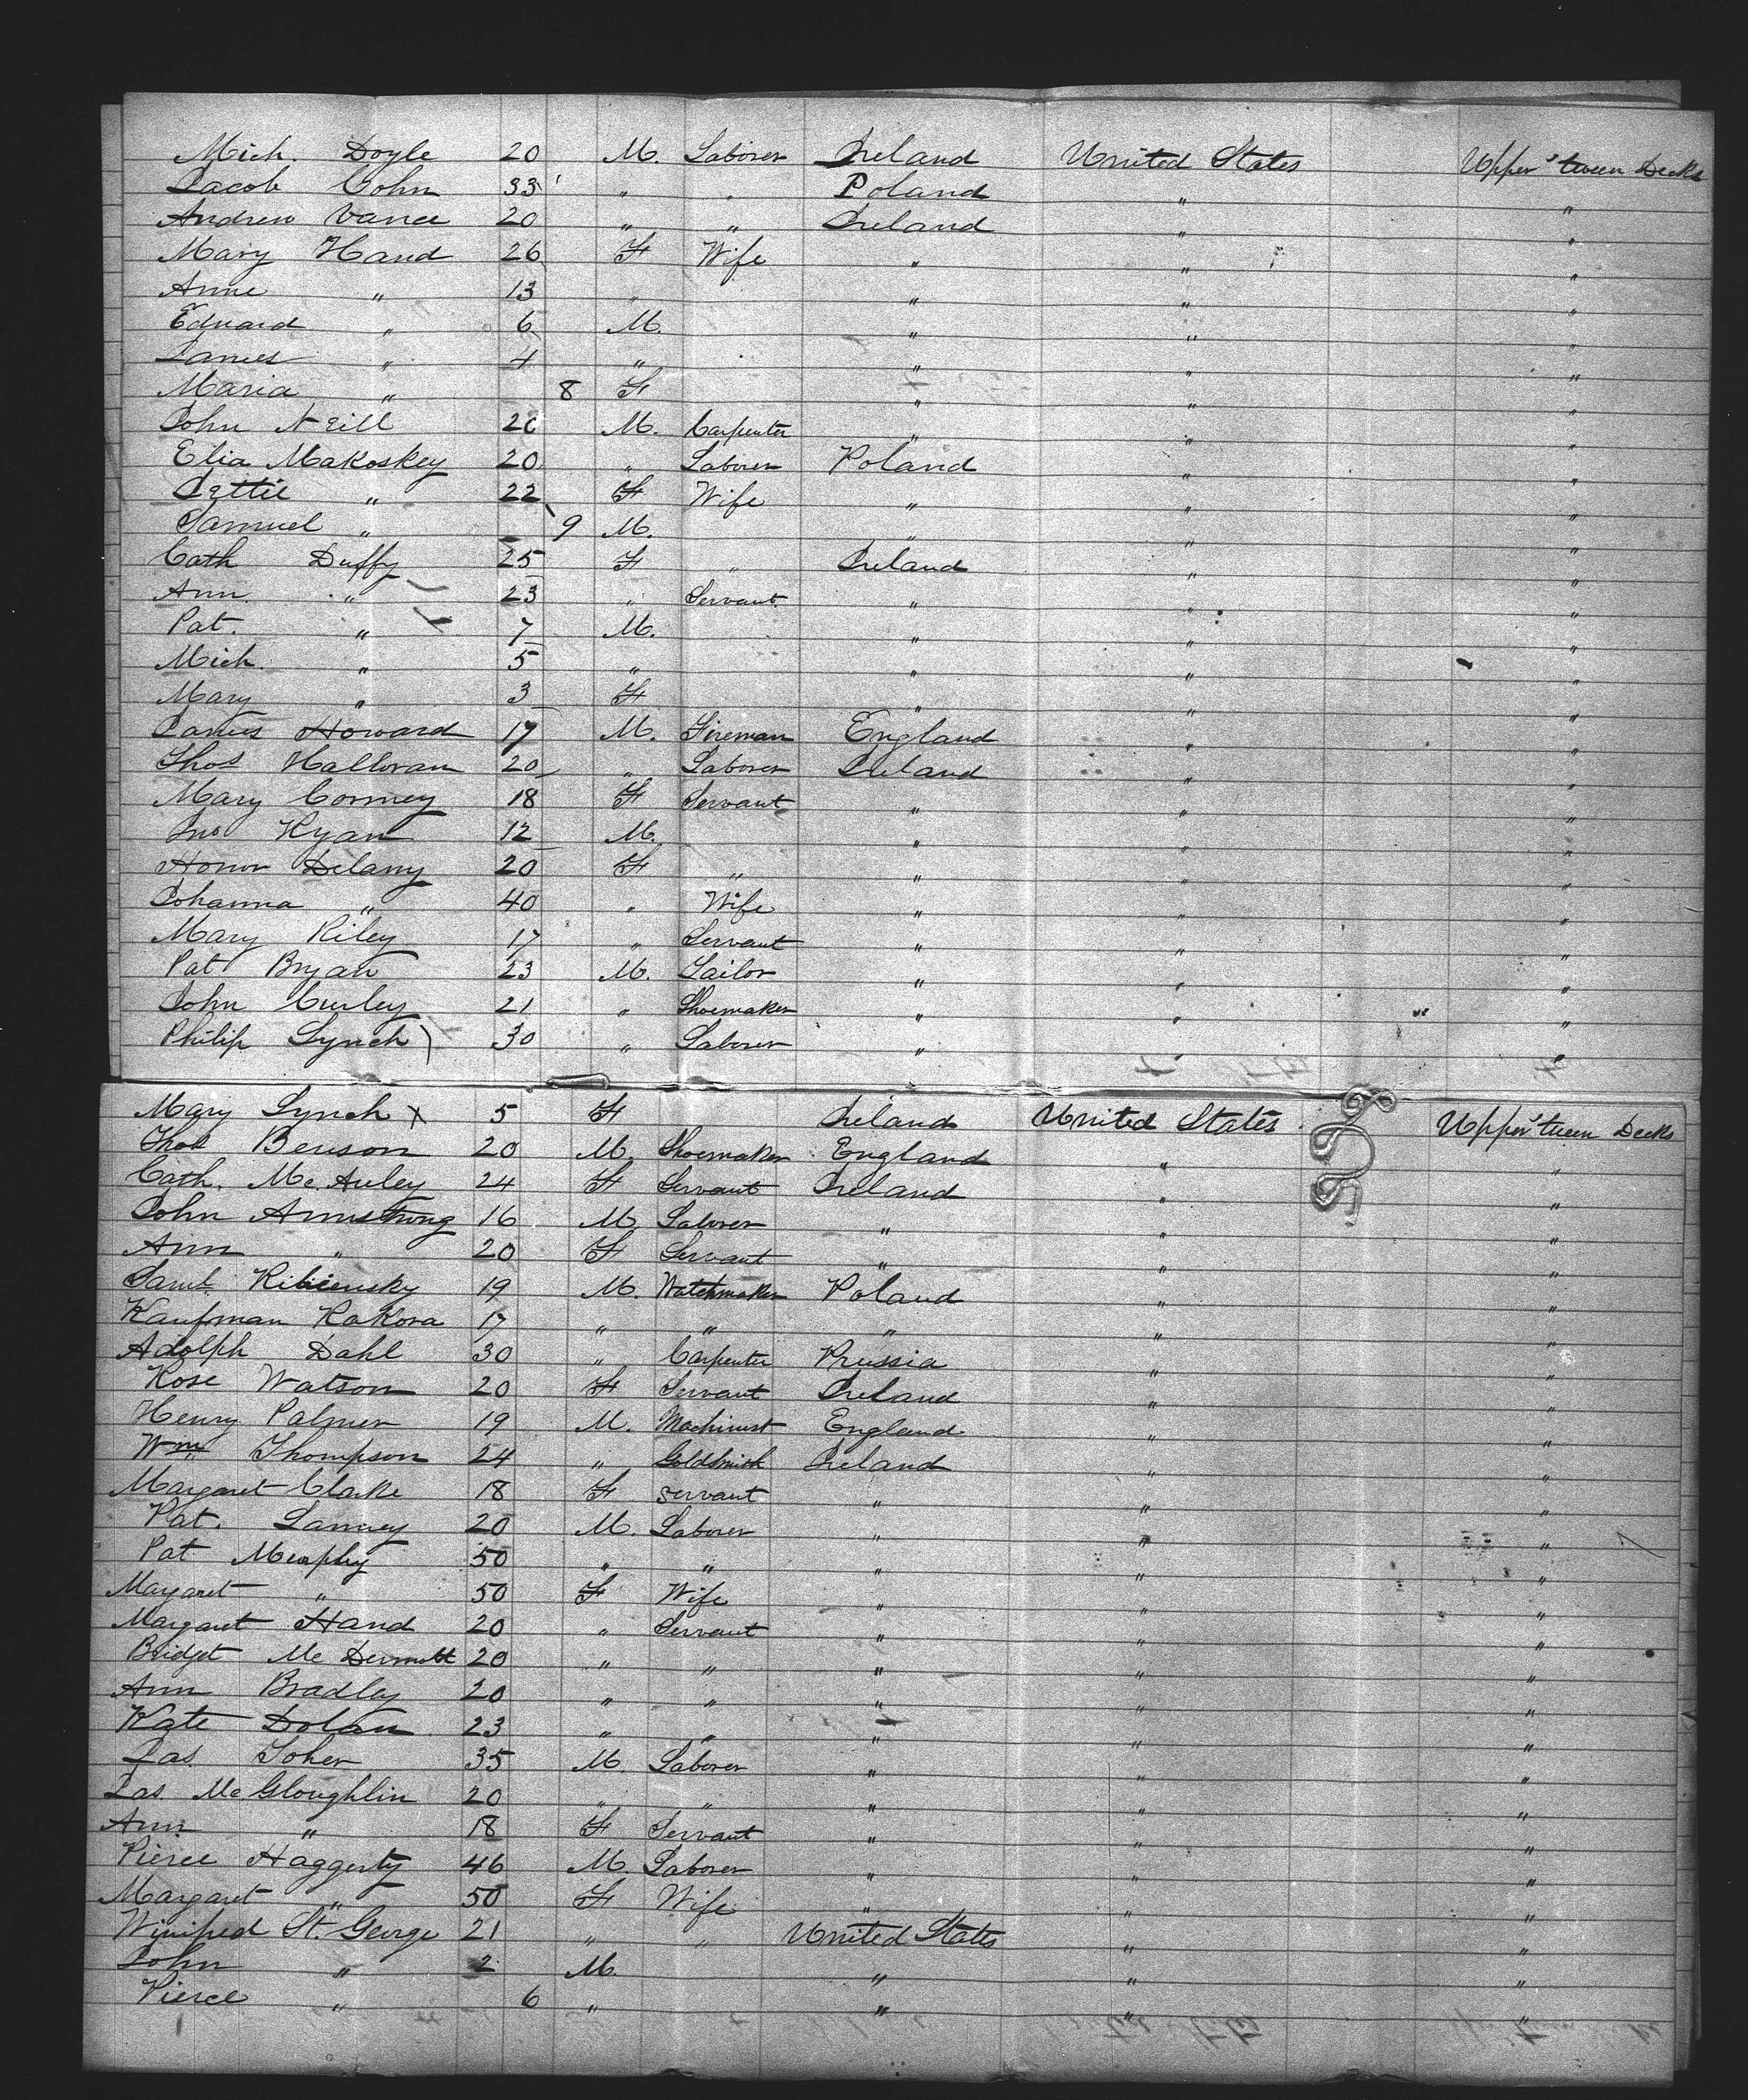 Mich. Doyle 20 M. Laborer Ireland United States Upper 'tween Decks
Jacob Cohn 33 " " Poland " "
Andrew Vance 20 " " Ireland " "
Mary Hand 26 F Wife " " "
Anne " 13 " " " "
Edward " 6 M. " " "
James " 4 " " " "
Maria " 8 F " " "
John Neill 20 M. Carpenter " " "
Elia Makoskey 20 " Laborer Poland " "
Jettie " 22 F Wife " " "
Samuel " 9 M. " " "
Cath Duffy 25 F " Ireland " "
Ann " 23 " Servant " " "
Pat. " 7 M. " " "
Mich " 5 " " " "
Mary " 3 F " " "
James Howard 17 M. Fireman England " "
Thos Halloran 20 " Laborer Ireland " "
Mary Cormey 18 F Servant " " "
Jno Ryan 12 M. " " "
Honor Delany 20 F " " " "
Johanna " 40 " Wife " " "
Mary Riley 17 " Servant " " "
Pat Bryan 23 M. Sailor " " "
John Curley 21 " Shoemaker " " "
Philip Lynch 30 " Laborer " " "
Mary Lynch x 5 F Ireland United States Upper 'tween Decks
Thos Benson 20 M. Shoemaker England " "
Cath. McAuley 24 F Servant Ireland " "
John Armstrong 16 M. Laborer " " "
Ann " 20 F Servant " " "
Saml. 19 M. Watchmaker Poland " "
Kaufman Kakora 17 " " " " "
Adolph Dahl 30 " Carpenter Prussia " "
Rose Watson 20 F Servant Ireland " "
Henry Palmer 19 M. Machinist England " "
Wm Thompson 24 " Goldsmith Ireland " "
Margaret Clarke 18 F Servant " " "
Pat. Lanney 20 M. Laborer " " "
Pat Murphy 50 " " " " "
Margaret " 50 F Wife " " "
Margaret Hand 20 " Servant " " "
Bridget McDermott 20 " " " " "
Ann Bradley 20 " " " " "
Kate Dolan 23 " " " " "
Jas. Toher 35 M. Laborer " " "
Jas. McGloughlin 20 " " " " "
Ann " 18 F Servant " " "
Pierce Haggerty 46 M. Laborer " " "
Margaret " 50 F Wife " " "
Winifred St. George 21 " " United States " "
John " 2 M. " " "
Pierce " 6 " " " "